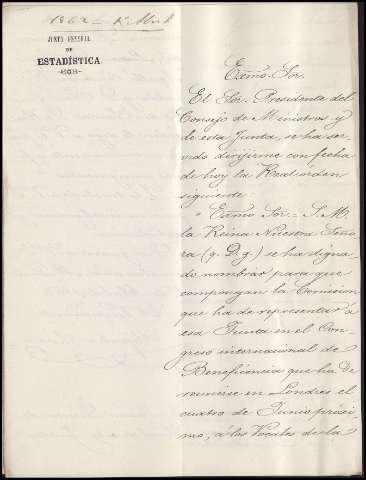 1862 - 1º Abril
JUNTA GENERAL
DE
ESTADÍSTICA
Exmo. Sor.
El Sor. Presidente del
Consejo de Ministros y
de esta Junta, se ha ser
vido dirijirme con fecha
de hoy la Real orden
siguiente:
"Exmo Sor.= S. M.
la Reina Nuestra Seño
ra (q. D. g.) se ha digna
do nombrar para que
compongan la Comision
que ha de representar á
esa Junta en el Con
greso internacional de
Beneficencia que ha de
reunirse en Londres el
cuatro de Junio prócsi
mo, á los Vocales de la